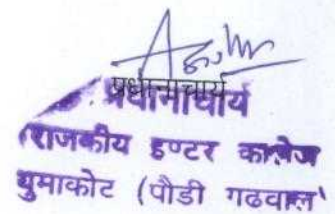 प्रधानाचार्य
प्रधानाचार्य
राजकीय इण्टर कालेज
धुमाकोट (पौडी गढवाल)